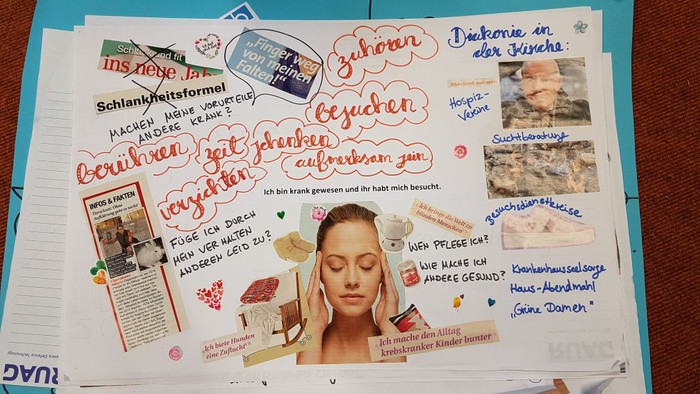 Schlank und fit
ins neue Ja
Schlankheitsformel
MACHEN MEINE VORURTEILE
ANDERE KRANK?
„Finger weg
von meinen
Falten!“
zuhören
besuchen
berühren
zeit schenken
aufmerksam sein
verzichten
Ich bin krank gewesen und ihr habt mich besucht.
Diakonie in
der Kirche:
Hospiz-
Vereine
Suchtberatung
Besuchsdienstkreise
Krankenhausseelsorge
Haus-Abendmahl
„Grüne Damen“
INFOS & FAKTEN
FÜGE ICH DURCH
MEIN VERHALTEN
ANDEREN LEID ZU?
„Ich bringe die Welt zu
blinden Menschen“
WEN PFLEGE ICH?
WIE MACHE ICH
ANDERE GESUND?
„Ich biete Hunden
eine Zuflucht“
„Ich mache den Alltag
krebskranker Kinder bunter
RUAG
RUAG